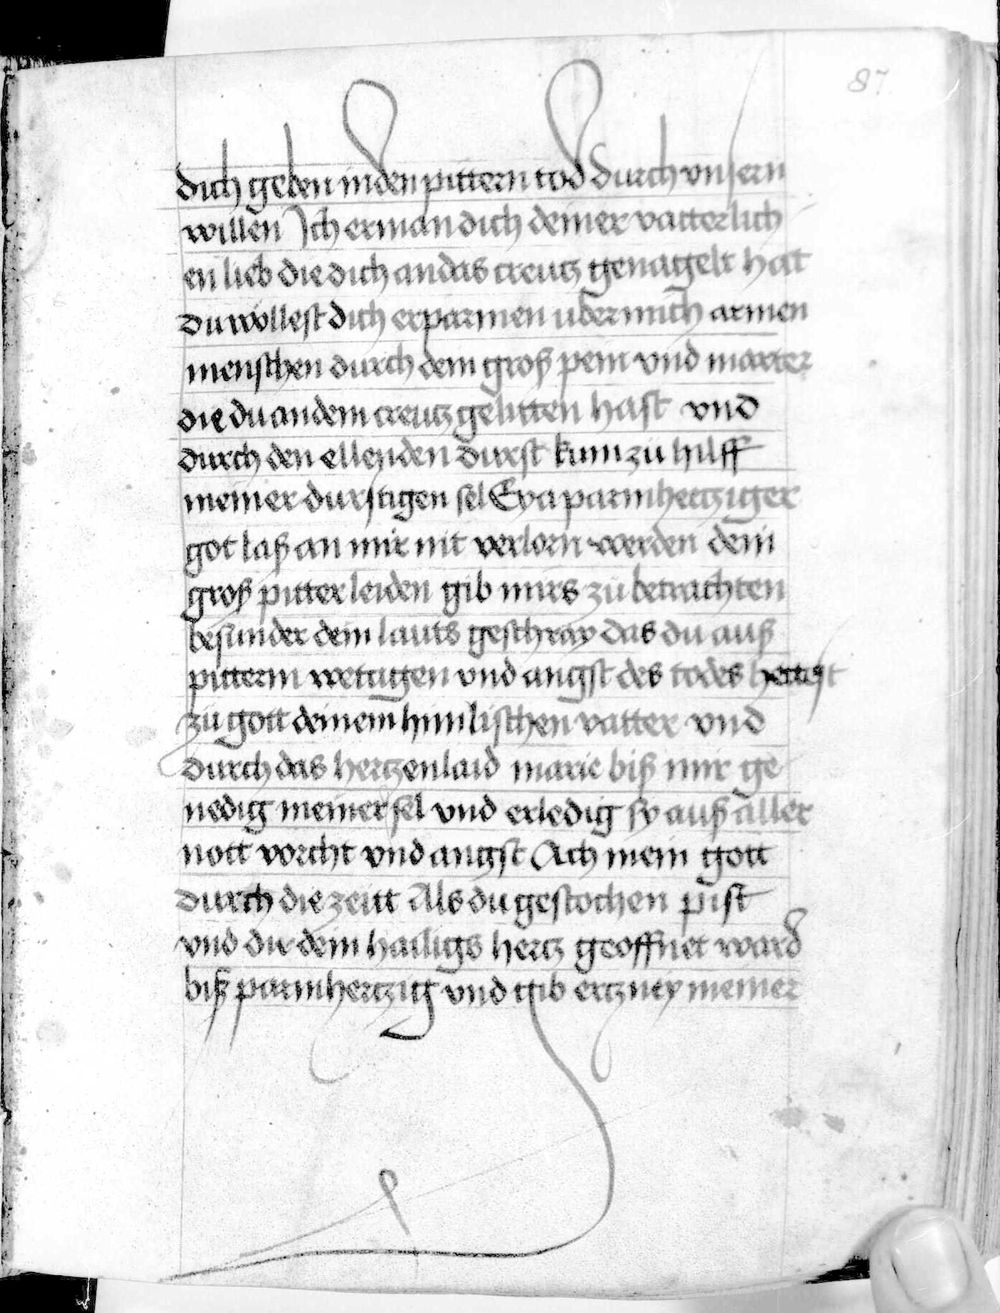 87
dich geben in den pittern tod durch vnsern
willen Ich erman dich deiner vatterlich
en lieb die dich an das creutz genagelt hat
du wöllest dich erparmen uber mich armen
menschen durch dein groß pein vnd marter
die du an dem creutz gelitten hast vnd
durch den ellenden durst kum zu hilff
meiner durstigen sel Eya parmhertziger
got laß an mir nit verlorn werden dein
groß pitter leiden gib mirs zu betrachten
besunder dein lauts geschray das du auß
pitterm wetagen vnd angst des todes hettest
zu gott deinem himlischen vatter vnd
durch das hertzenlaid marie biß mir ge
nedig meiner sel vnd erledig sy auß aller
nott vorcht vnd angst Ach mein gott
durch die zeitt Als du gestochen pist
vnd dir dein hailigs hertz geoffnet ward
biß parmhertzig vnd gib ertzney meiner